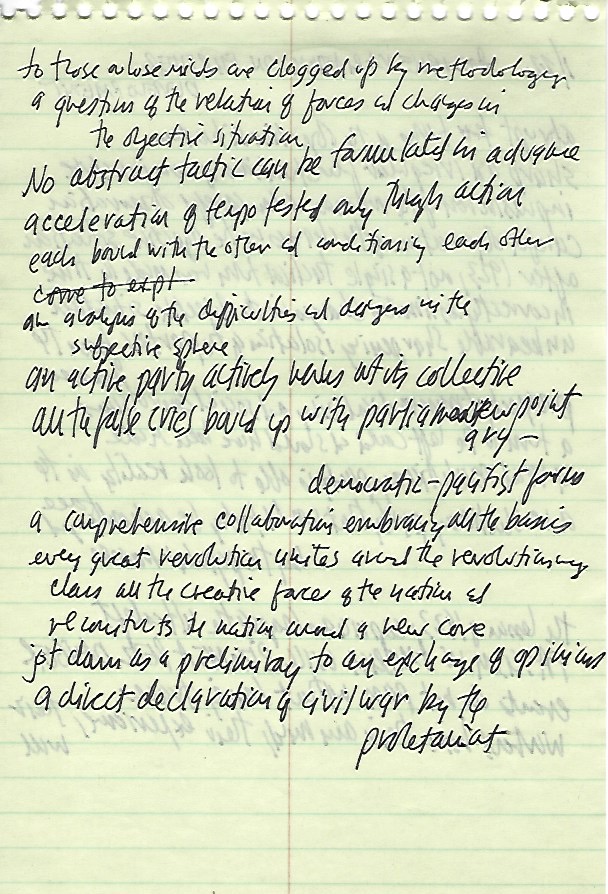 to those whose minds are clogged up by methodology
a question of the relation of forces and changes in
the objective situation
No abstract tactic can be formulated in advance
acceleration of tempo tested only through action
each bound with the other and conditioning each other
come to expl
an analysis of the difficulties and dangers in the
subjective sphere
an active party actively works at its collective
viewpoint
all the false cries bound up with parliament
ary –
democratic-pacifist forms
a comprehensive collaboration embracing all the basics
every great revolution unites around the revolutionary
class all the creative forces of the nation and
reconstructs the nation around a new core
jot down as a preliminary to any exchange of opinions
a direct declaration of civil war by the
proletariat